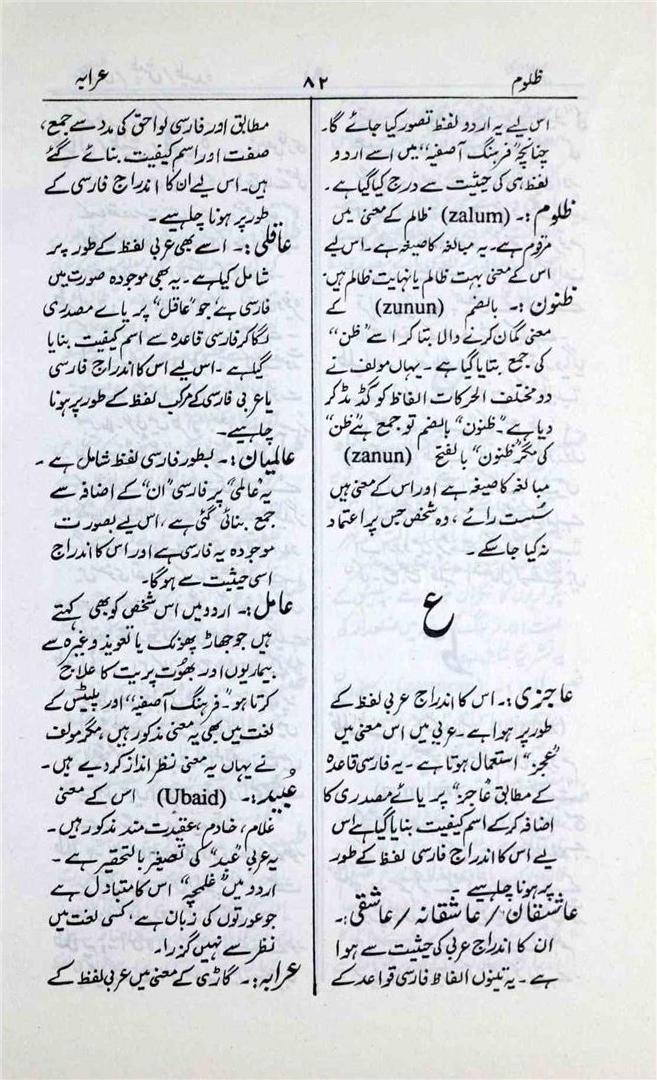 ظلوم
۸۲
عرابہ
اس لیے یہ اردو لفظ تصور کیا جائے گا۔
چنانچہ "فرہنگ آصفیہ" میں اسے اردو
لفظ ہی کی حیثیت سے درج کیا گیا ہے۔
ظلوم :۔ (zalum) ظالم کے معنی میں
مرقوم ہے۔ یہ مبالغہ کا صیغہ ہے۔ اس لیے
اس کے معنی بہت ظالم یا نہایت ظالم ہیں۔
ظنون :۔ بالضم (zunun) کے
معنی گمان کرنے والا بتا کر اسے "ظن"
کی جمع بتایا گیا ہے۔ یہاں مولف نے
دو مختلف الحرکات الفاظ کو گڈ مڈ کر
دیا ہے۔ "ظنون" بالضم تو جمع ہے "ظن"
کی مگر "ظنون" بالفتح (zanun)
مبالغہ کا صیغہ ہے اور اس کے معنی ہیں
سُست رائے، وہ شخص جس پر اعتماد
نہ کیا جا سکے۔
ع
عاجزی :۔ اس کا اندراج عربی لفظ کے
طور پر ہوا ہے۔ عربی میں اس معنی میں
"عجز" استعمال ہوتا ہے۔ یہ فارسی قاعدہ
کے مطابق "عاجز" پر یائے مصدری کا
اضافہ کر کے اسم کیفیت بنایا گیا ہے اس
لیے اس کا اندراج فارسی لفظ کے طور
پر ہونا چاہیے۔
عاشقان / عاشقانہ / عاشقی :۔
ان کا اندراج عربی کی حیثیت سے ہوا
ہے۔ یہ تینوں الفاظ فارسی قواعد کے
مطابق اور فارسی لواحق کی مدد سے جمع،
صفت اور اسم کیفیت بنائے گئے
ہیں۔ اس لیے ان کا اندراج فارسی کے
طور پر ہونا چاہیے۔
عاقلی :۔ اسے بھی عربی لفظ کے طور پر
شامل کیا ہے۔ یہ بھی موجودہ صورت میں
فارسی ہے، جو "عاقل" پر یائے مصدری
لگا کر فارسی قاعدہ سے اسم کیفیت بنایا
گیا ہے۔ اس لیے اس کا اندراج فارسی
یا عربی فارسی کے مرکب لفظ کے طور پر ہونا
چاہیے۔
عالمیان :۔ بطور فارسی لفظ شامل ہے۔
یہ "عالمی" پر فارسی "ان" کے اضافہ سے
جمع بنائی گئی ہے، اس لیے بصورت
موجودہ یہ فارسی ہے اور اس کا اندراج
اسی حیثیت سے ہوگا۔
عامل :۔ اردو میں اس شخص کو بھی کہتے
ہیں جو جھاڑ پھونک یا تعویذ وغیرہ سے
بیماریوں اور بھُوت پریت کا علاج
کرتا ہو۔ "فرہنگ آصفیہ" اور پلیٹس کے
لغت میں بھی یہ معنی مذکور ہیں، مگر مولف
نے یہاں یہ معنی نظر انداز کر دیے ہیں۔
عُبید :۔ (Ubaid) اس کے معنی
غلام، خادم، عقیدت مند مذکور ہیں۔
یہ عربی "عبد" کی تصغیر بالتحقیر ہے۔
اردو میں "غلمچہ" اس کا متبادل ہے
جو عورتوں کی زبان ہے، کسی لغت میں
نظر سے نہیں گزرا۔
عرابہ :۔ گاڑی کے معنی میں عربی لفظ کے